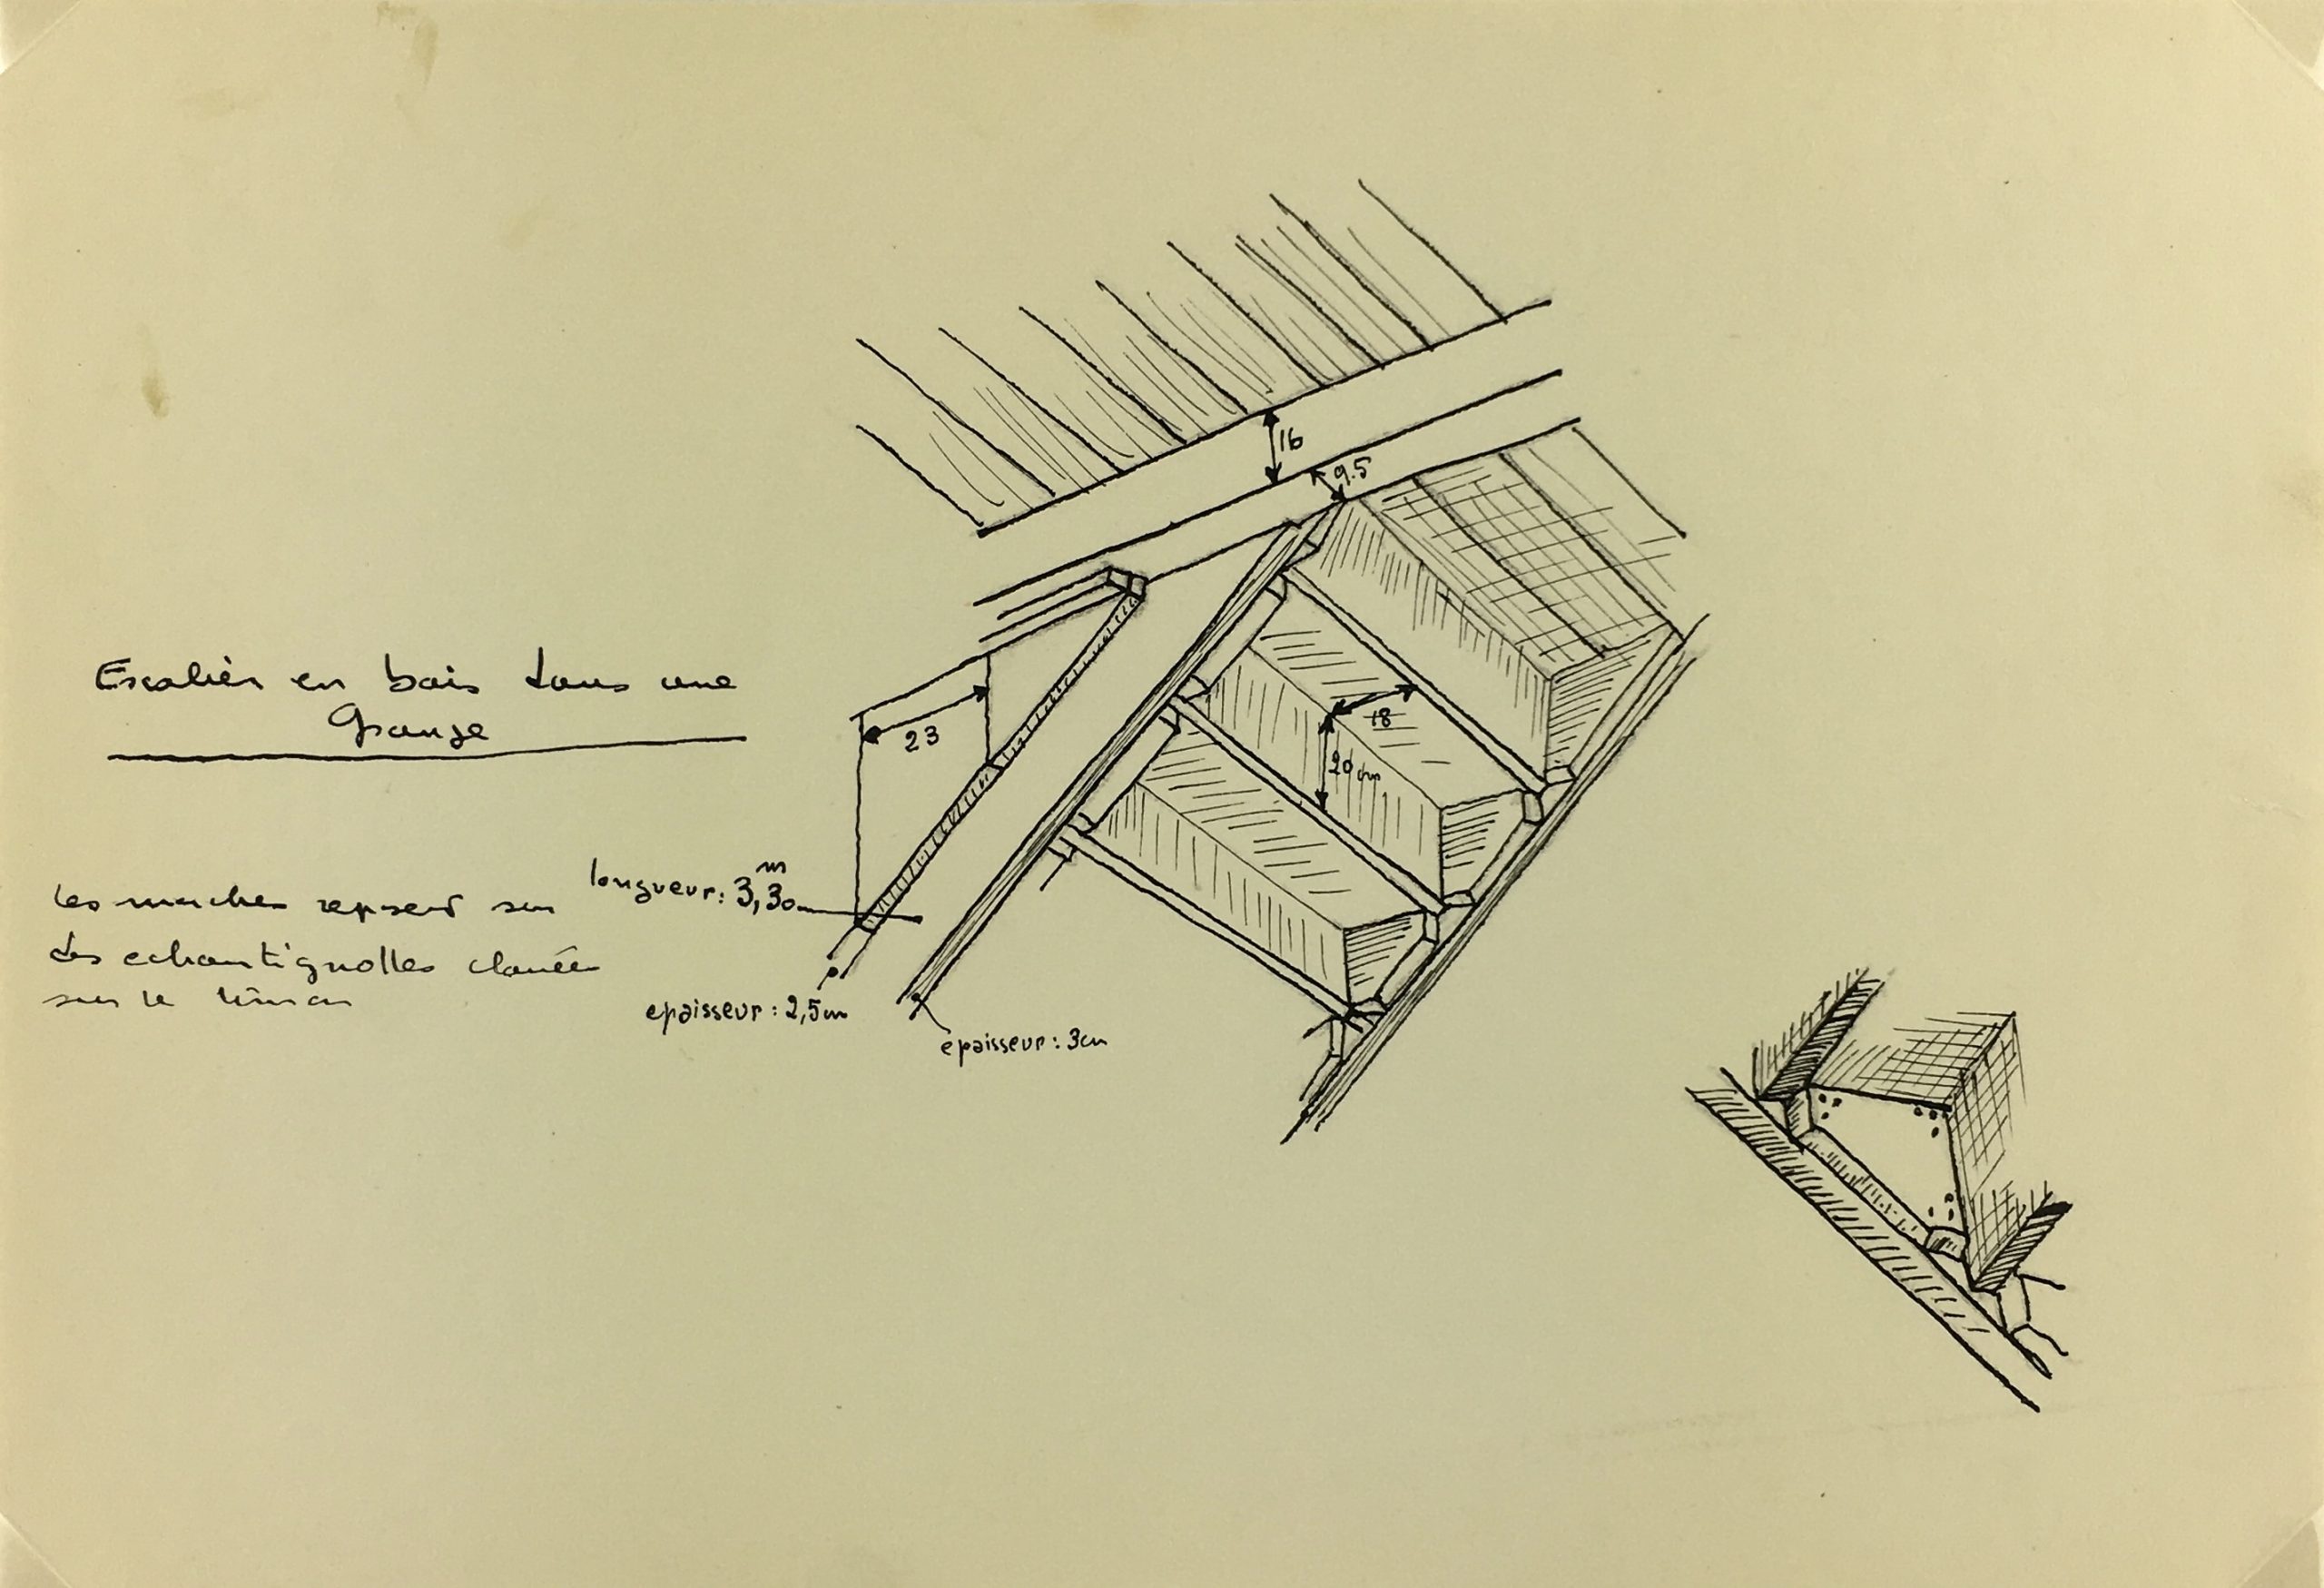 Escalier en bois dans une
Grange
16
9.5
18
20 cm
23
longueur: 3,30 m
Les marches reposent sur
des echantignolles clouées
sur le limon
epaisseur: 2,5cm
epaisseur: 3cm